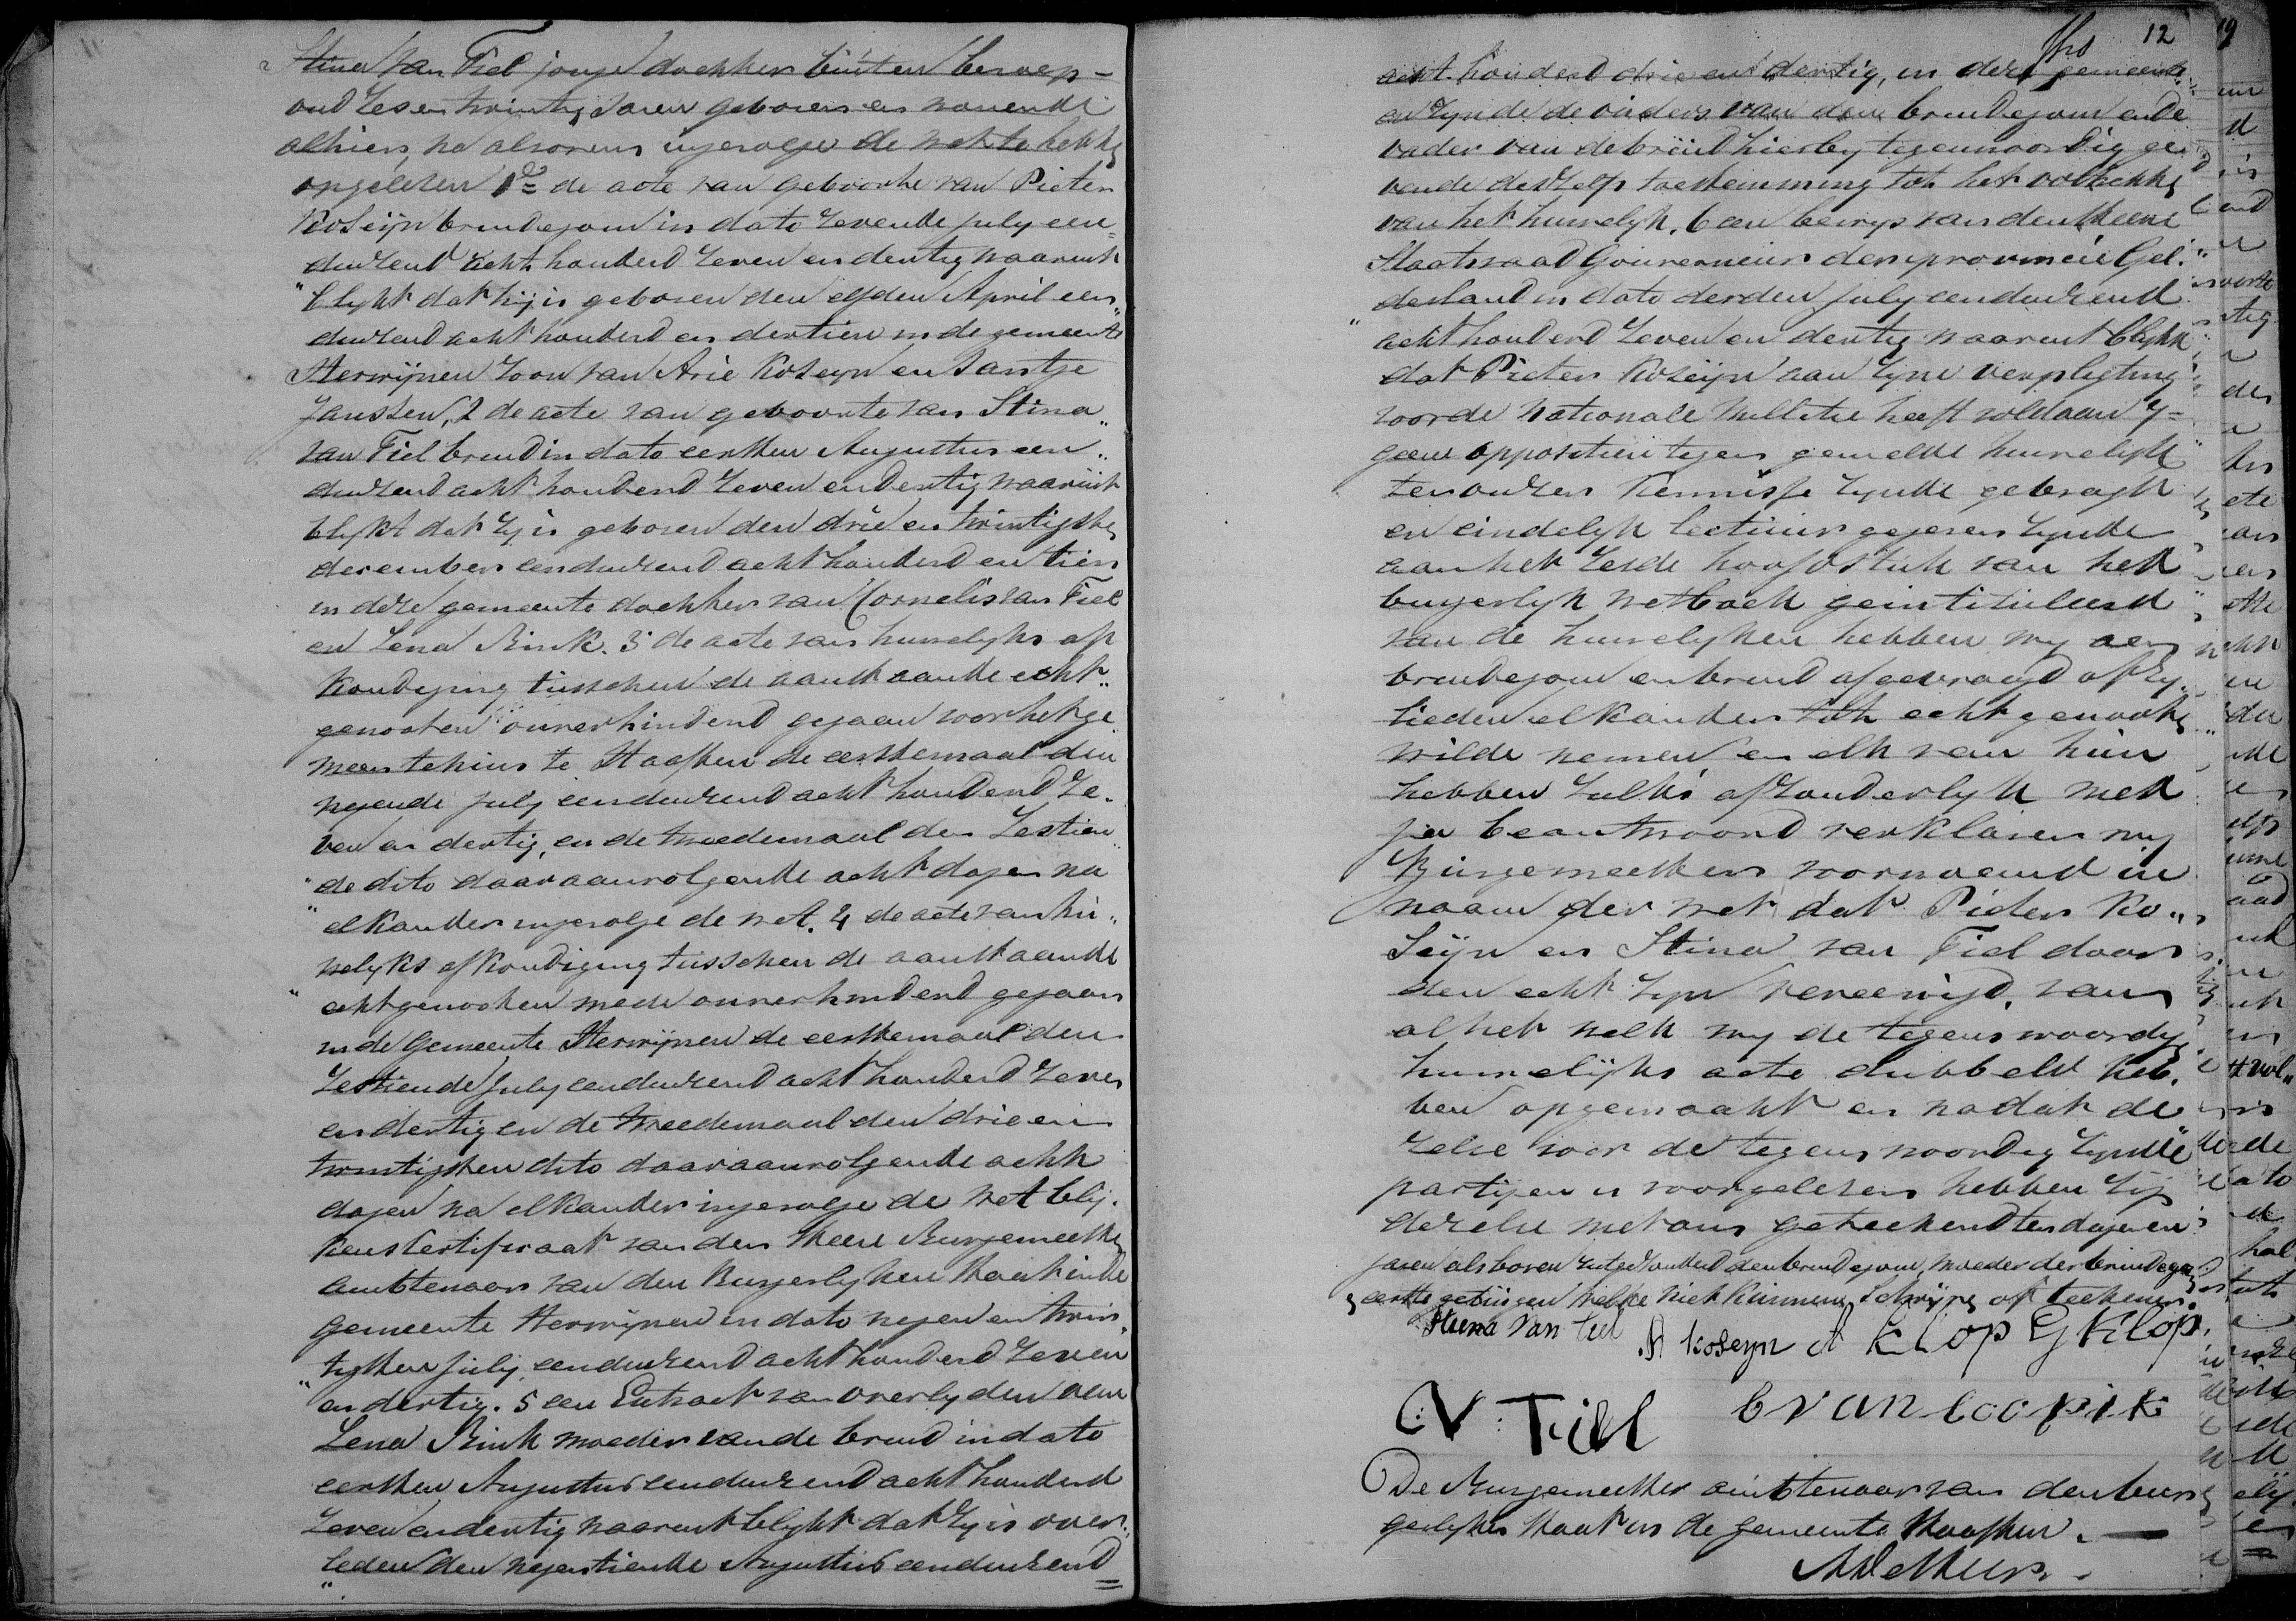 Stina van Tiel jonge dochter buiten beroep-
oud zes en twintig Jaren geboren en wonende
alhier, na alvorens ingevolge de wet te hebbe
opgelezen 1e= de acte van geboorte van Pieter
Koseijn bruidegom in dato zevende july een=
duizend acht honderd zeven en dertig waaruit
"blykt dat hij is geboren den elfden April een"
duizend acht honderd en dertien in de gemeente
Herwijnen Zoon van Arie Koseyn en Jantje
Janssen, 2 de acte van geboorte van Stina
van Tiel bruid in dato eersten Augustus een"
duizend acht honderd zeven en dertig waaruit
blykt dat zy is geboren den drie en twintigste
december eenduizend acht honderd en tien
in deze gemeente dochter van Cornelis van Tiel
en Lena Bink. 3 de acte van huwelyks af
kondiging tusschen de aanstaande echt"
genooten onverhinderd gegaan voor het ge
meentehuis te Haaften de eerstemaal den
negende july eenduizend acht honderd ze-
ven en dertig, en de tweedemaal den Zestien
"de dito daaraanvolgende acht dagen na
"elkander ingevolge de wet. 4 de acte van hu"
welyks afkondiging tusschen de aanstaande
"echtgenooten mede onverhinderd gegaan
in de Gemeente Herwijnen de eerstemaal den
Zestiende July eenduizend acht honderd zeven
en dertig en de tweedemaal den drie en
twintigsten dito daaraanvolgende acht
dagen na elkander ingevolge de wet blij-
kens Certificaat van den Heere Burgemeester
ambtenaar van den Burgerlyken Staat in de
gemeente Herwijnen in dato negen en twin"
"tigsten july, eenduizend acht honderd zeven
en dertig. 5 een Extract van overlyden van
Lena Bink moeder van de bruid in dato
eersten Augustus eenduizend acht honderd
zeven en dertig waaruit blykt dat zy is over"
leden den negentiende Augustus eenduizend=
12
acht honderd drie en dertig, in deze gemeente
en zynde de ouders van den bruidegom en de
vader van de bruid hierby tegenwoordig ge-
vende derzelfs toestemming tot het voltrekke
van het huwelyk. 6 een bewys van den Heere
Staatsraad Gouverneur der provincie Gel"
derland in dato derden july eenduizend
"acht honderd zeven en dertig waaruit blykt
dat Pieter Koseijn aan zyne verpligting
voor de Nationale Millitie heeft voldaan 7=
geene oppositien tegen gemelde huwelyk
ter onzer kennisse zynde gebragt
en eindelyk lectuur gegeven zynde
aan het zesde hoofdstuk van het
burgerlyk wetboek geintituleerd
van de huwelyken hebben wy aen
bruidegom en bruid afgevraagd of zy
lieden elkander tot echtgenoote
wilde nemen en elk van hun
hebben zulks afzonderlyk met
ja beantwoord verklaren wy
Burgemeester voornoemd in
naam der wet dat Pieter Ko"
seijn en Stina van Tiel door
den echt zyn vereenigd, van
al het welk wy de tegenswoordige
huwelijks acte dubbeld heb-
ben opgemaakt en nadat de
zelve voor de tegenswoordig zynde
partijen is voorgelezen hebben zij
dezelve met ons geteekend ten dage en
jaren als boven uitgezonderd den bruidegom, moeder der bruidegom
eerste getuigen welke niet kunnen Schrijve of teekenen.
Steena van teel
A koseyn A Klop G Klop.
C V Tiell
b van coopik
De Burgemeester ambtenaar van den bur
gerlyken Staat in de gemeente Haaften.